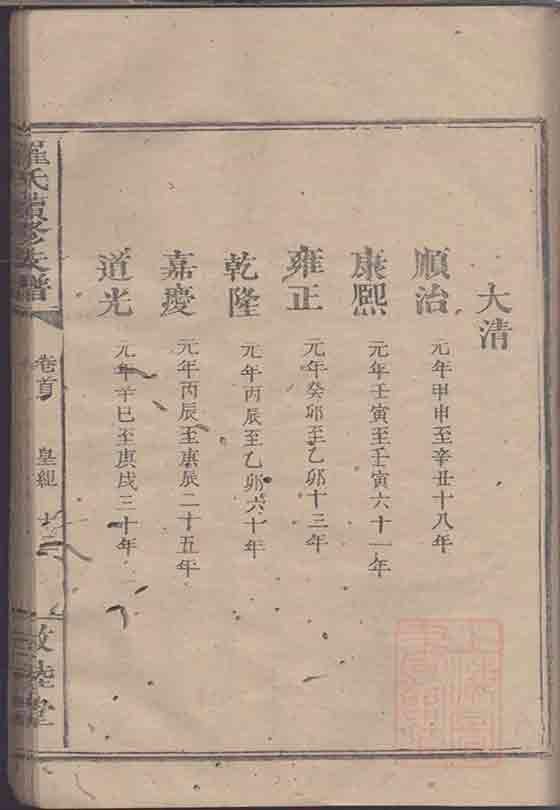 大清
順治 元年甲申至辛丑十八年
康熙 元年壬寅至壬寅六十一年
雍正 元年癸卯至乙卯十三年
乾隆 元年丙辰至乙卯六十年
嘉慶 元年丙辰至庚辰二十五年
道光 元年辛巳至庚戌三十年
羅氏續修支譜 卷首 皇紀 敦睦堂
上海圖書館藏